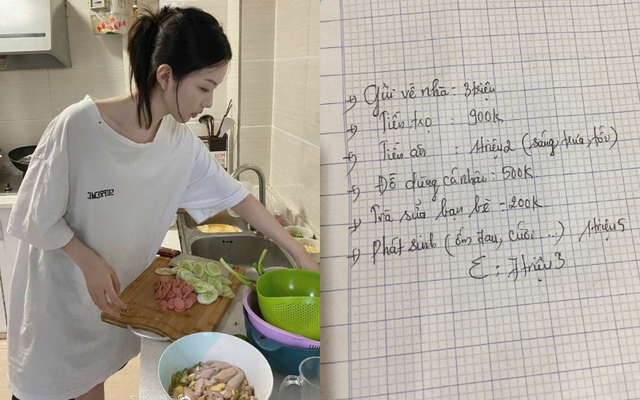 SUPREME
→ Gửi về nhà : 3 triệu
→ Tiền trọ : 900k
→ Tiền ăn : 1triệu2 (sáng, trưa, tối)
→ Đồ dùng cá nhân : 500k
→ Trà sữa bạn bè : 200k
→ Phát sinh (ốm đau, cưới ...) 1triệu5
Σ : 7triệu3